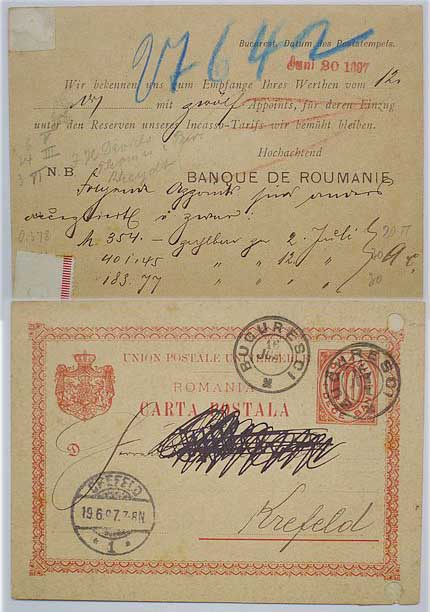 27642
Bucarest, Datum des Poststempels.
Juni 20 1897
Wir bekennen uns zum Empfange Ihres Werthen vom 12.
mit zwölf Appoints, für deren Einzug
unter den Reserven unseres Incasso-Tarifs wir bemüht bleiben.
Hochachtend
N.B. BANQUE DE ROUMANIE
Folgende Appoints sind anders
acceptiert
M. 354.— zahlbar 2. Juli
401.45 " " 12. "
183.77 " " " "
UNION POSTALE UNIVERSELLE
ROMANIA
CARTA POSTALA
BUCURESCI
BUCURESCI
10
D
Herren
CREFELD
19.6.97.7-8N
* 1 *
Krefeld